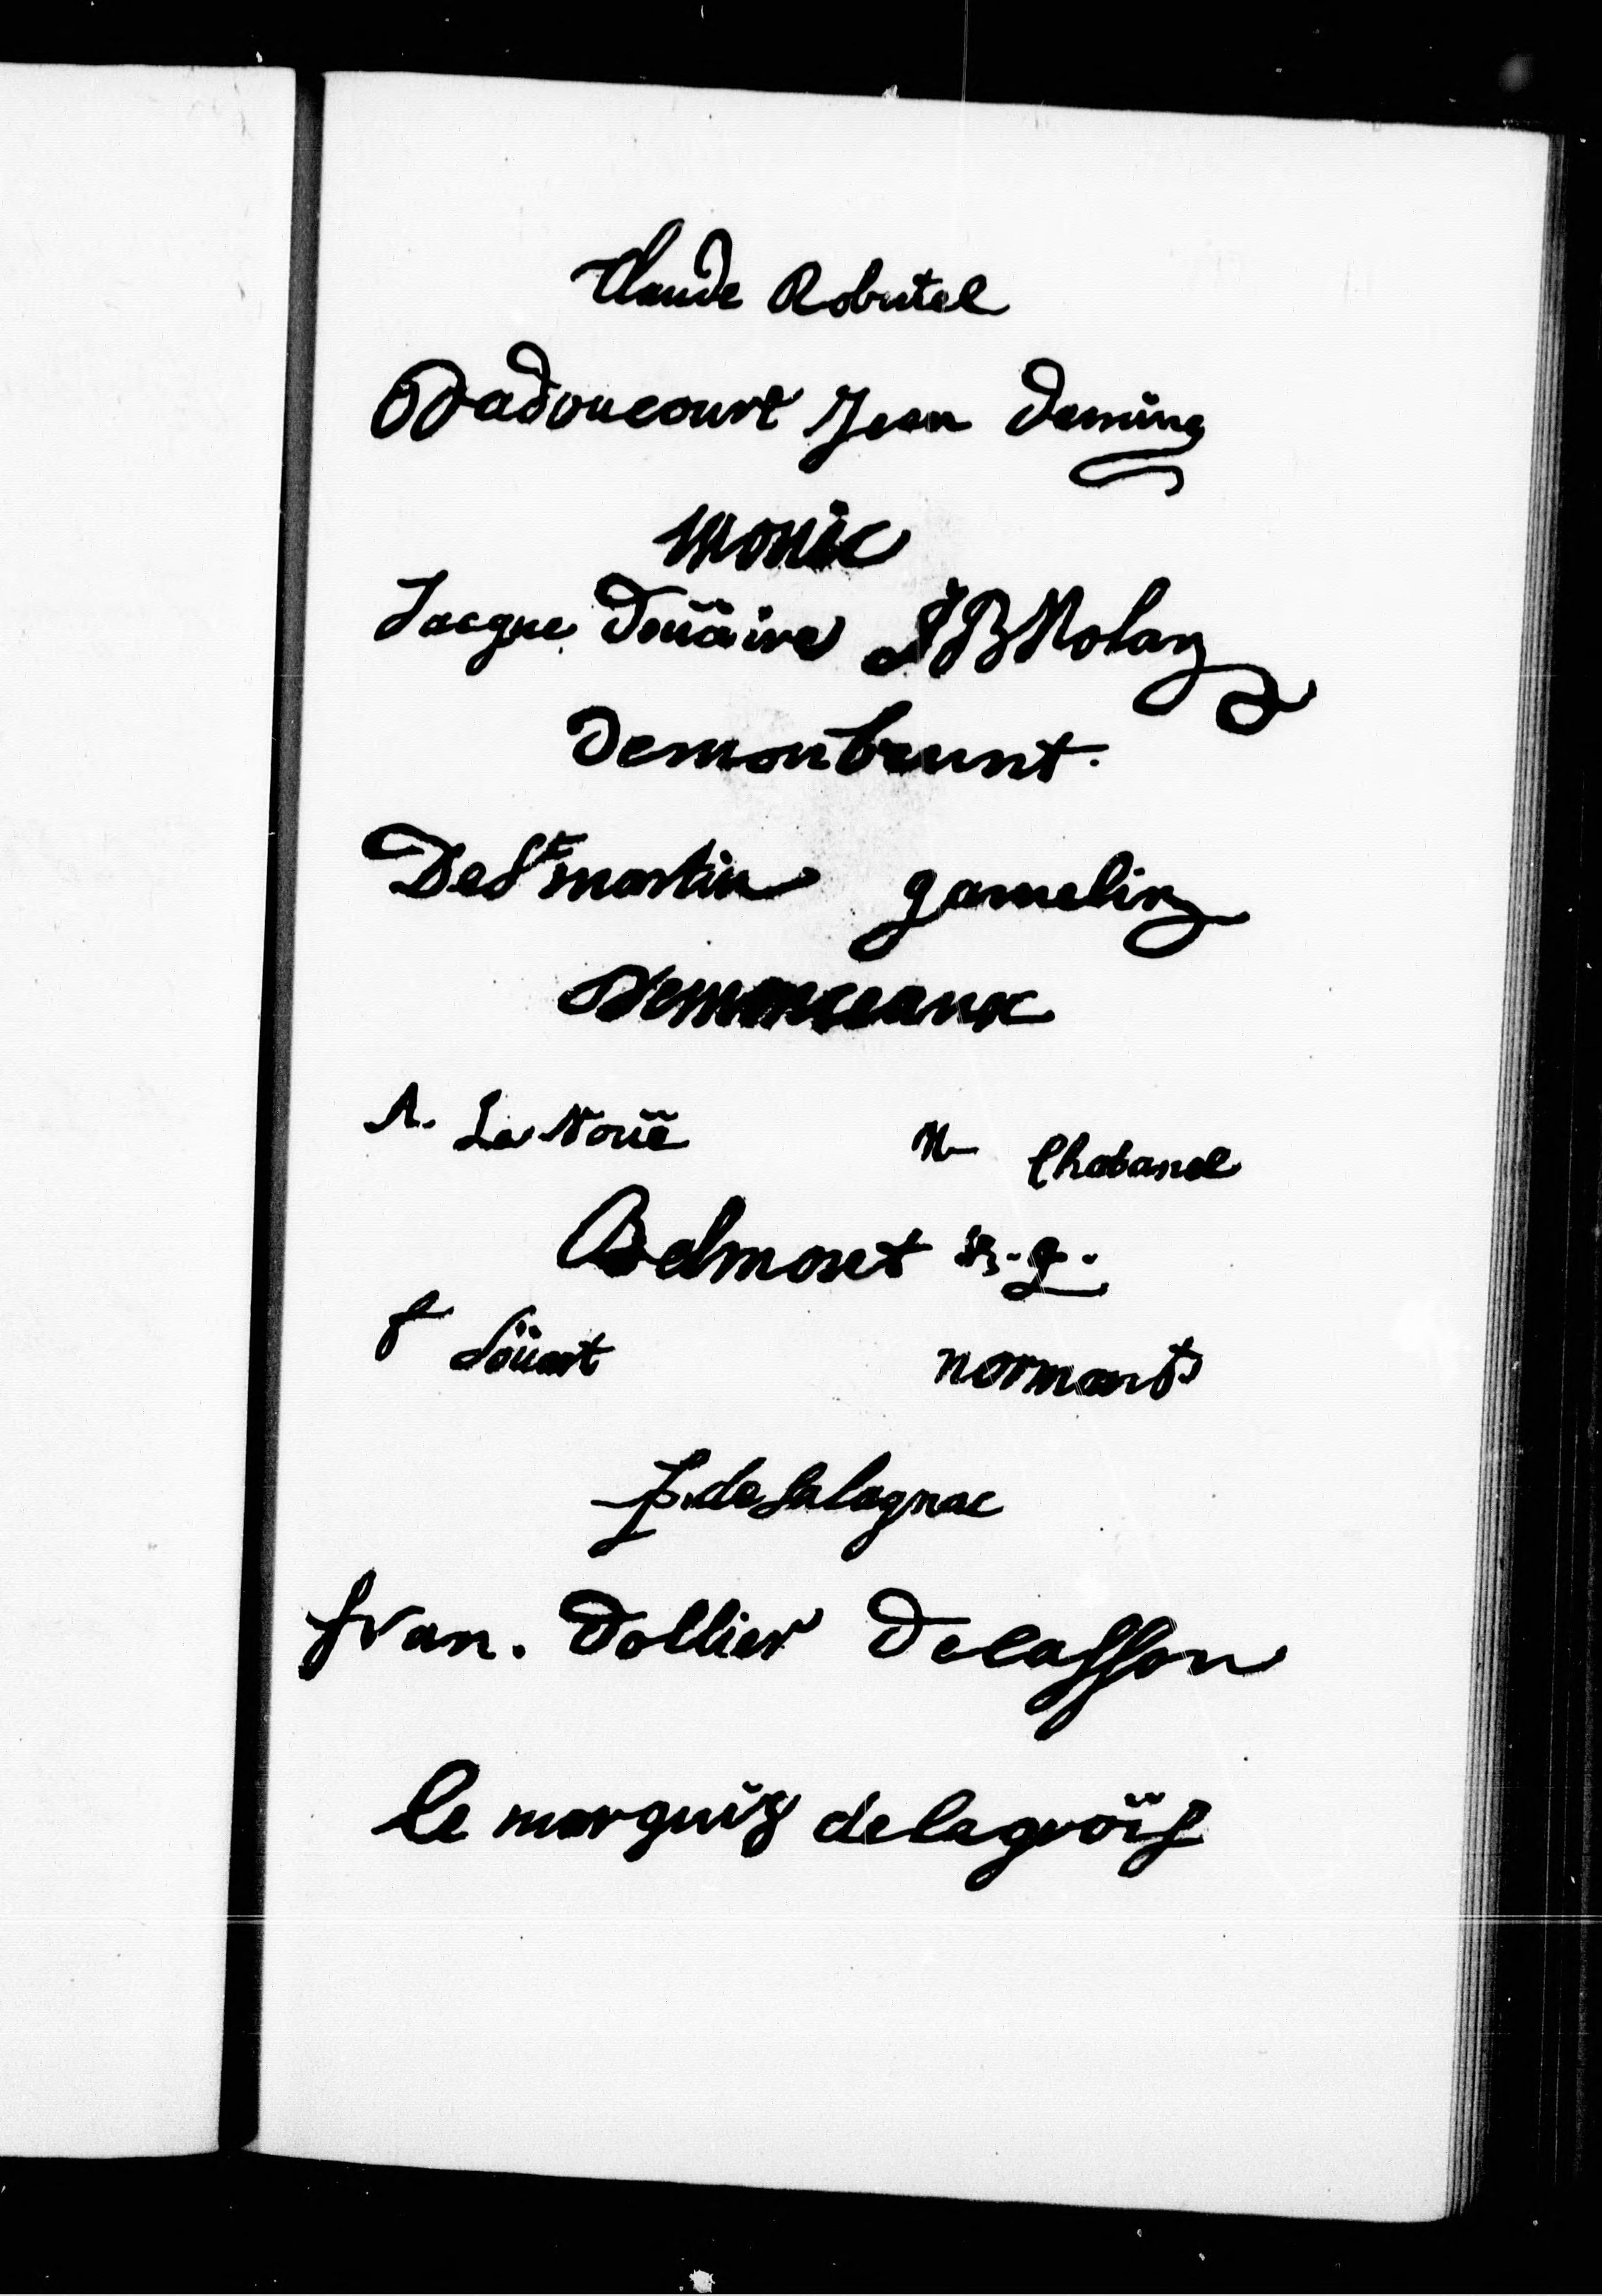 Claude Robutel
Dadoucourt Jean
Monic
Jacque Doüaire JB Nolan
Demonbrunt.
De St martin gamelin
Demonceaux
A. La Noüe N Chabanel
Belmont
f Soüart normant
J. de Salagnac
fran. Dollier Decasson
le marquis delagrois